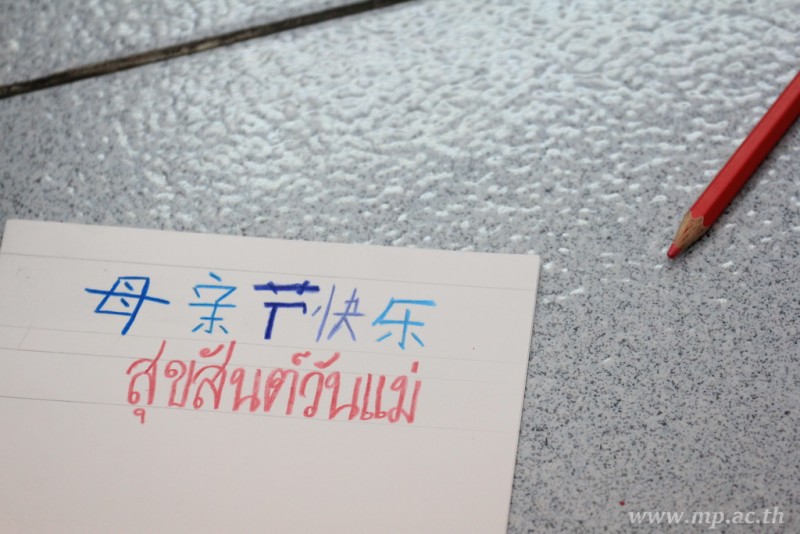 母亲节快乐
สุขสันต์วันแม่
www.mp.ac.th